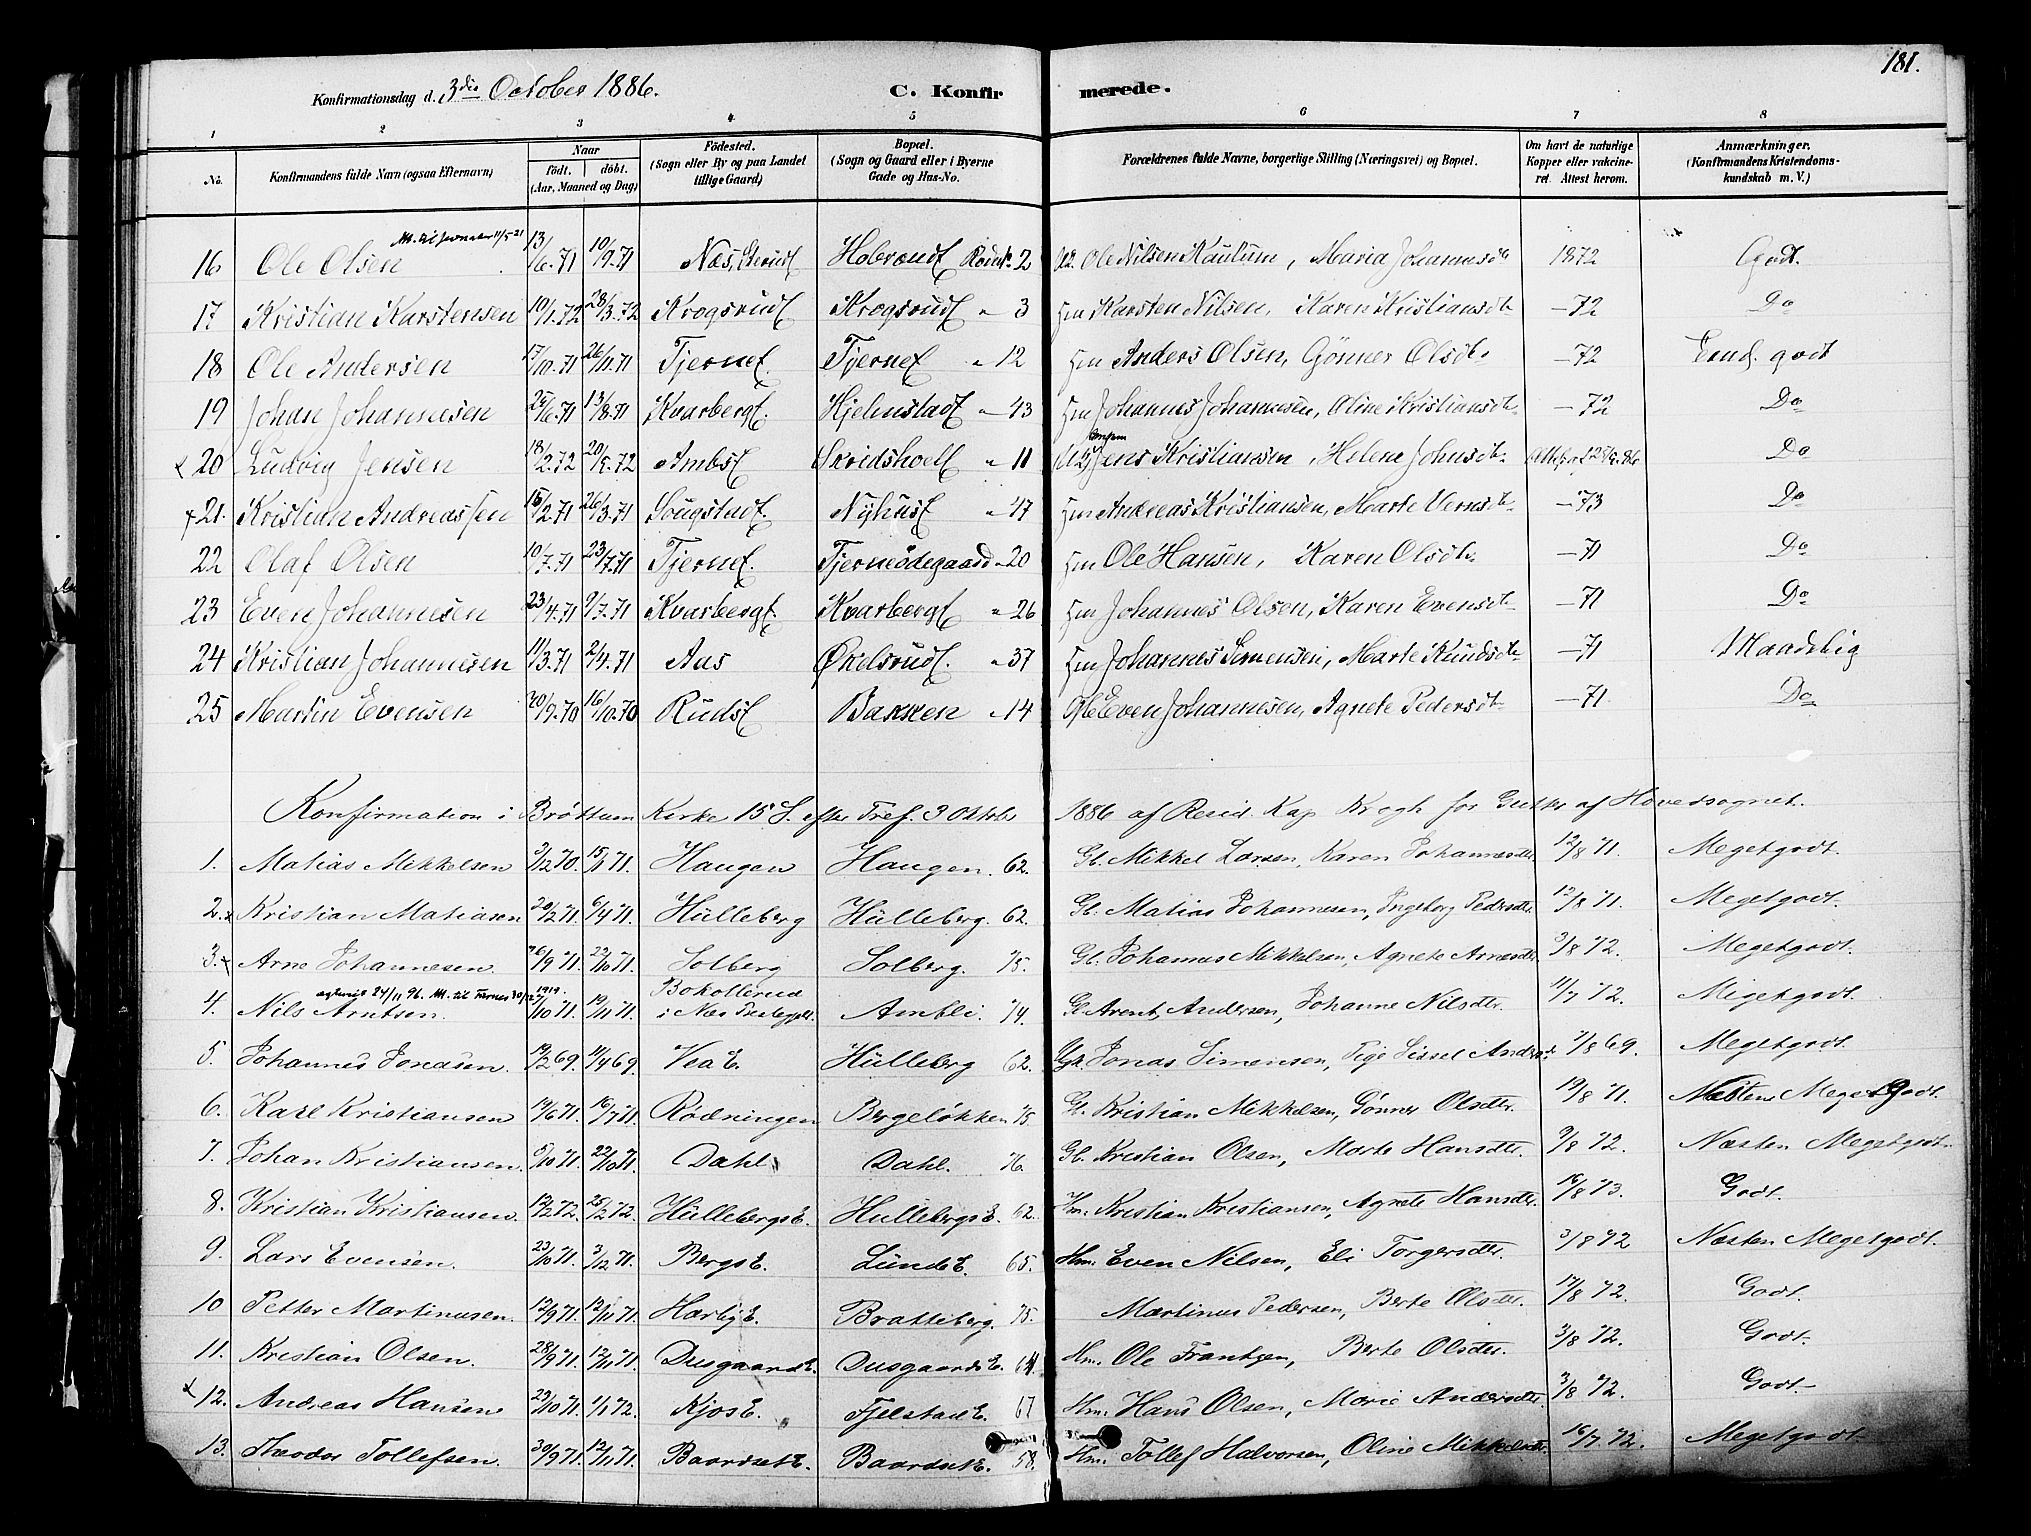 181.
Konfirmationsdag d. 3die October 1886. C. Konfirmerede.
1 2 3 4 5 6 7 8
No. Konfirmandens fulde Navn (ogsaa Efternavn) Naar født. døbt. (Aar, Maaned og Dag) Fødested. (Sogn eller By og paa Landet tillige Gaard) Bopæl. (Sogn og Gaard eller i Byerne Gade og Hus-No. Forældrenes fulde Navne, borgerlige Stilling (Næringsvei) og Bopæl. Om havt de naturlige Kopper eller vakcineret. Attest herom. Anmærkninger. (Konfirmandens Kristendomskundskab m. V.)
16 Ole Olsen 13/6.71 10/9.71 Næs, 2 Ole Nilsen Kaulum, Maria Johannesdt 1872 Godt.
17 Kristian Karstensen 19/1.72 28/3.72 Krogsrud Krogsrud " 3 Hm Karsten Nilsen, Karen Kristiansdt - 72 Do
18 Ole Andersen 17/10.71 26/11.71 Tjerne Tjerne " 12 Hm Anders Olsen, Gönner Olsdt - 72 godt
19 Johan Johannesen 25/6.71 13/8.71 Kvarberg Hjelmstad " 43 Hm Johannes Johannesen, Oline Kristiansdt - 72 Do
20 Ludvig Jensen 18/2.72 20/5.72 Ambs Skridshol " 11 Jens Kristiansen, Helene Johnsdt Do
21. Kristian Andreassen 15/2.71 26/3.71 Sougstad Nyhus " 47 Hm Andreas Kristiansen, Marte Vernsdt - 73 Do
22 Olaf Olsen 10/7.71 23/7.71 Tjerne Tjerneødegaard " 20 Hm Ole Hansen, Karen Olsdt - 71 Do
23 Even Johannesen 23/4.71 9/7.71 Kvarberg Kvarberg " 26 Hm Johannes Olsen, Karen Evensdt - 71 Do
24 Kristian Johannesen 11/3.71 2/4.71 Aas Økelsrud " 37 Hm Johannes Simensen, Marte Knudsdt - 71 Maadelig
25 Martin Evensen 20/9.70 16/10.70 Ruds Bakken " 14 Even Johannesen, Agnete Pedersdt - 71 Do
Konfirmation i Brøttum Kirke 15 S. efter Tref. 3 Oktober 1886 af Resid. Kap Krogh for Gutter af Hovedsognet.
1. Matias Mikkelsen 3/12 70 15/1 71. Haugen Haugen. 62. Gb. Mikkel Larsen, Karen Johannesdtr. 12/8 71. Megetgodt.
2. Kristian Matiasen 20/2 71. 6/4 71. Hulleberg Hulleberg. 62. Gb. Matias Johannesen, Ingeborg Pedersdtr. 12/8 71. Megetgodt.
3. Arne Johannesen. 26/9 71. 22/10 71. Solberg Solberg. 75. Gb. Johannes Mikkelsen, Agnete Arnesdtr. 3/8 72. Megetgodt.
4. Nils Arntsen. 19/11 71. i Næs Ambli. 74. Gb. Arent Andersen, Johanne Nilsdtr. 11/7 72. Megetgodt.
5. Johannes Jonasen. 19/2 69. 11/4 69. Vea E. Hulleberg 62. Jonas Simensen, Pige Sissel 7/8 69. Megetgodt.
6. Karl Kristiansen 14/6 71. 16/7 71. Rødningen Bergeløkken 75 Gb. Kristian Mikkelsen, Gønner Olsdtr. 19/8 71. Næsten Megetgodt.
7. Johan Kristiansen. 5/10 71. 22/10 71. Dahl Dahl. 76. Gb. Kristian Olsen, Marte Hansdtr. 9/8 72. Næsten Megetgodt.
8. Kristian Kristiansen. 12/2 72. 25/2 72. Hullebergs E. Hullebergs E. 62. Hm. Kristian Kristiansen, Agnete Hansdtr. 16/8 73. Godt.
9. Lars Evensen. 23/10 71. 3/12 71. Bergs E. Lunds E. 65. Hm. Even Nilsen, Eli Torgersdtr. 3/8 72 Næsten Megetgodt.
10 Petter Martinusen. 12/9 71. 12/11 71. Harlig E. Bratteberg. 75. Martinus Pedersen, Berte Olsdtr. 17/8 72. Godt.
11. Kristian Olsen. 28/9 71. 12/11 71. Dusgaards E. Dusgaards E. 64. Hm. Ole Frantzen, Berte Olsdtr. 3/8 72. Godt.
12. Andreas Hansen 23/10 71. 1/1 72. Kjos E. Fjelstad E. 67 Hm. Hans Olsen, Marie Andersdtr. 3/8 72. Godt.
13. Theodor Tollefsen. 30/9 71. 12/11 71. Baardset E. Baardset E. 58. Hm. Tollef Halvorsen, Oline Mikkelsdtr. 16/7 72. Megetgodt.